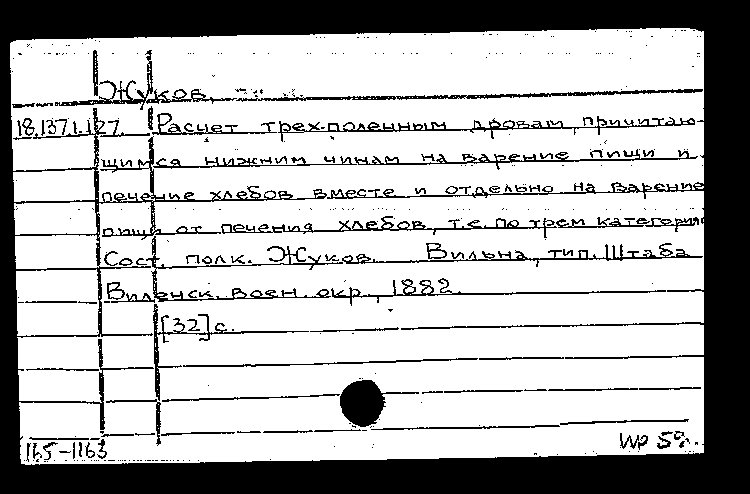 Жуков,
18.137.1.127. Расчет трех-поленным дровам, причитаю-
щимся нижним чинам на варение пищи и
печение хлебов вместе и отдельно на варение
пищи от печения хлебов, т.е. по трем категория
Сост. полк. Жуков. Вильна, тип. Штаба
Виленск. воен. окр., 1882.
[32] с.
115-1163